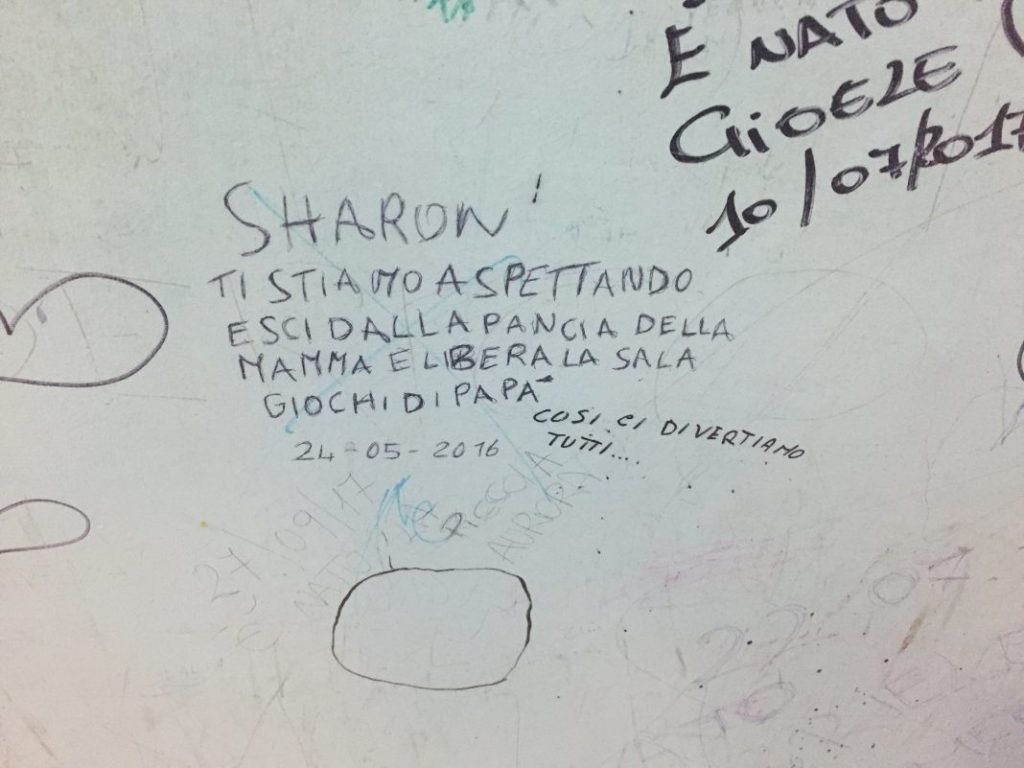 È NATO
GIOELE
10/07/2017
SHARON!
TI STIAMO ASPETTANDO
ESCI DALLA PANCIA DELLA
MAMMA E LIBERA LA SALA
GIOCHI DI PAPA'
COSI CI DIVERTIAMO
TUTTI....
24-05-2016
27/09/17
AURORA
22 07